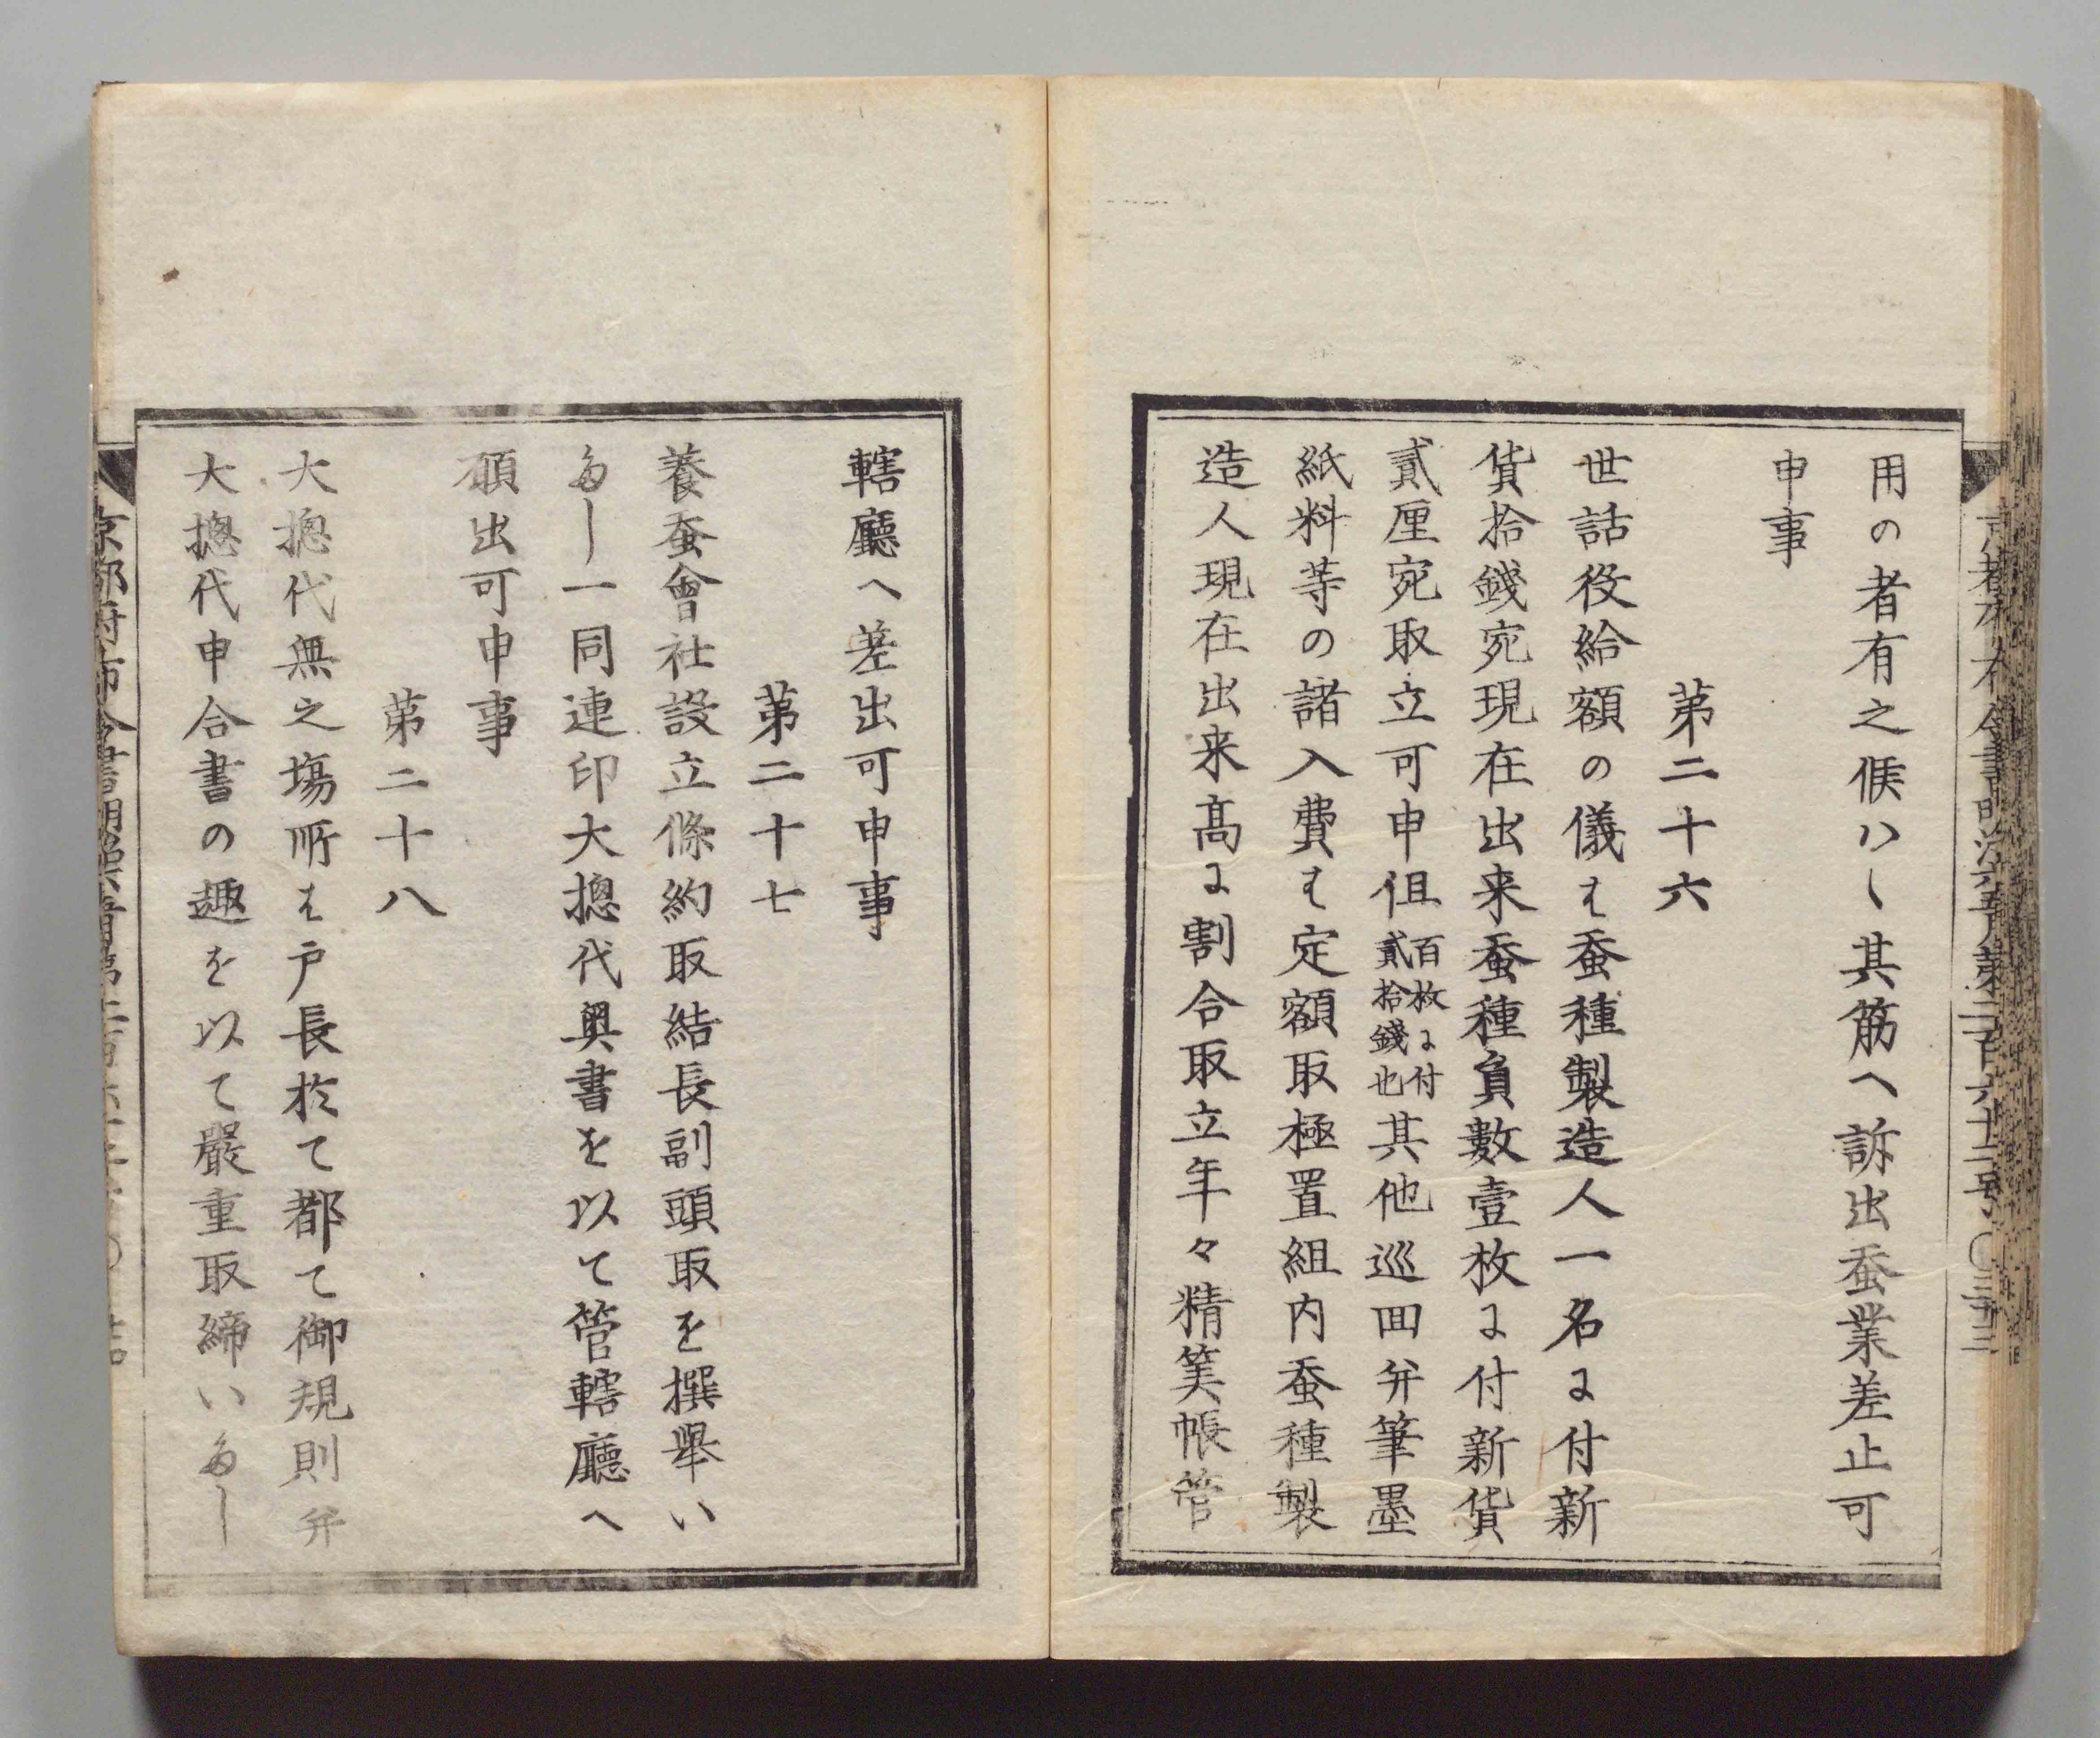 用の者有之候ハヽ其筋へ訴出蚕業差止可
申事
第二十六
世話役給額の儀は蚕種製造人一名に付新
貨拾錢宛現在出来蚕種員數壹枚に付新貨
貳厘宛取立可申但百枚に付貳拾錢也其他巡囬并筆墨
紙料等の諸入費は定額取極置組内蚕種製
造人現在出来髙に割合取立年々精筭帳管
轄廳へ差出可申事
第二十七
養蚕會社設立條約取結長副頭取を撰舉い
たし一同連印大摠代奥書を以て管轄廳へ
願出可申事
第二十八
大摠代無之塲所は戸長於て都て御規則并
大摠代申合書の趣を以て嚴重取締いたし